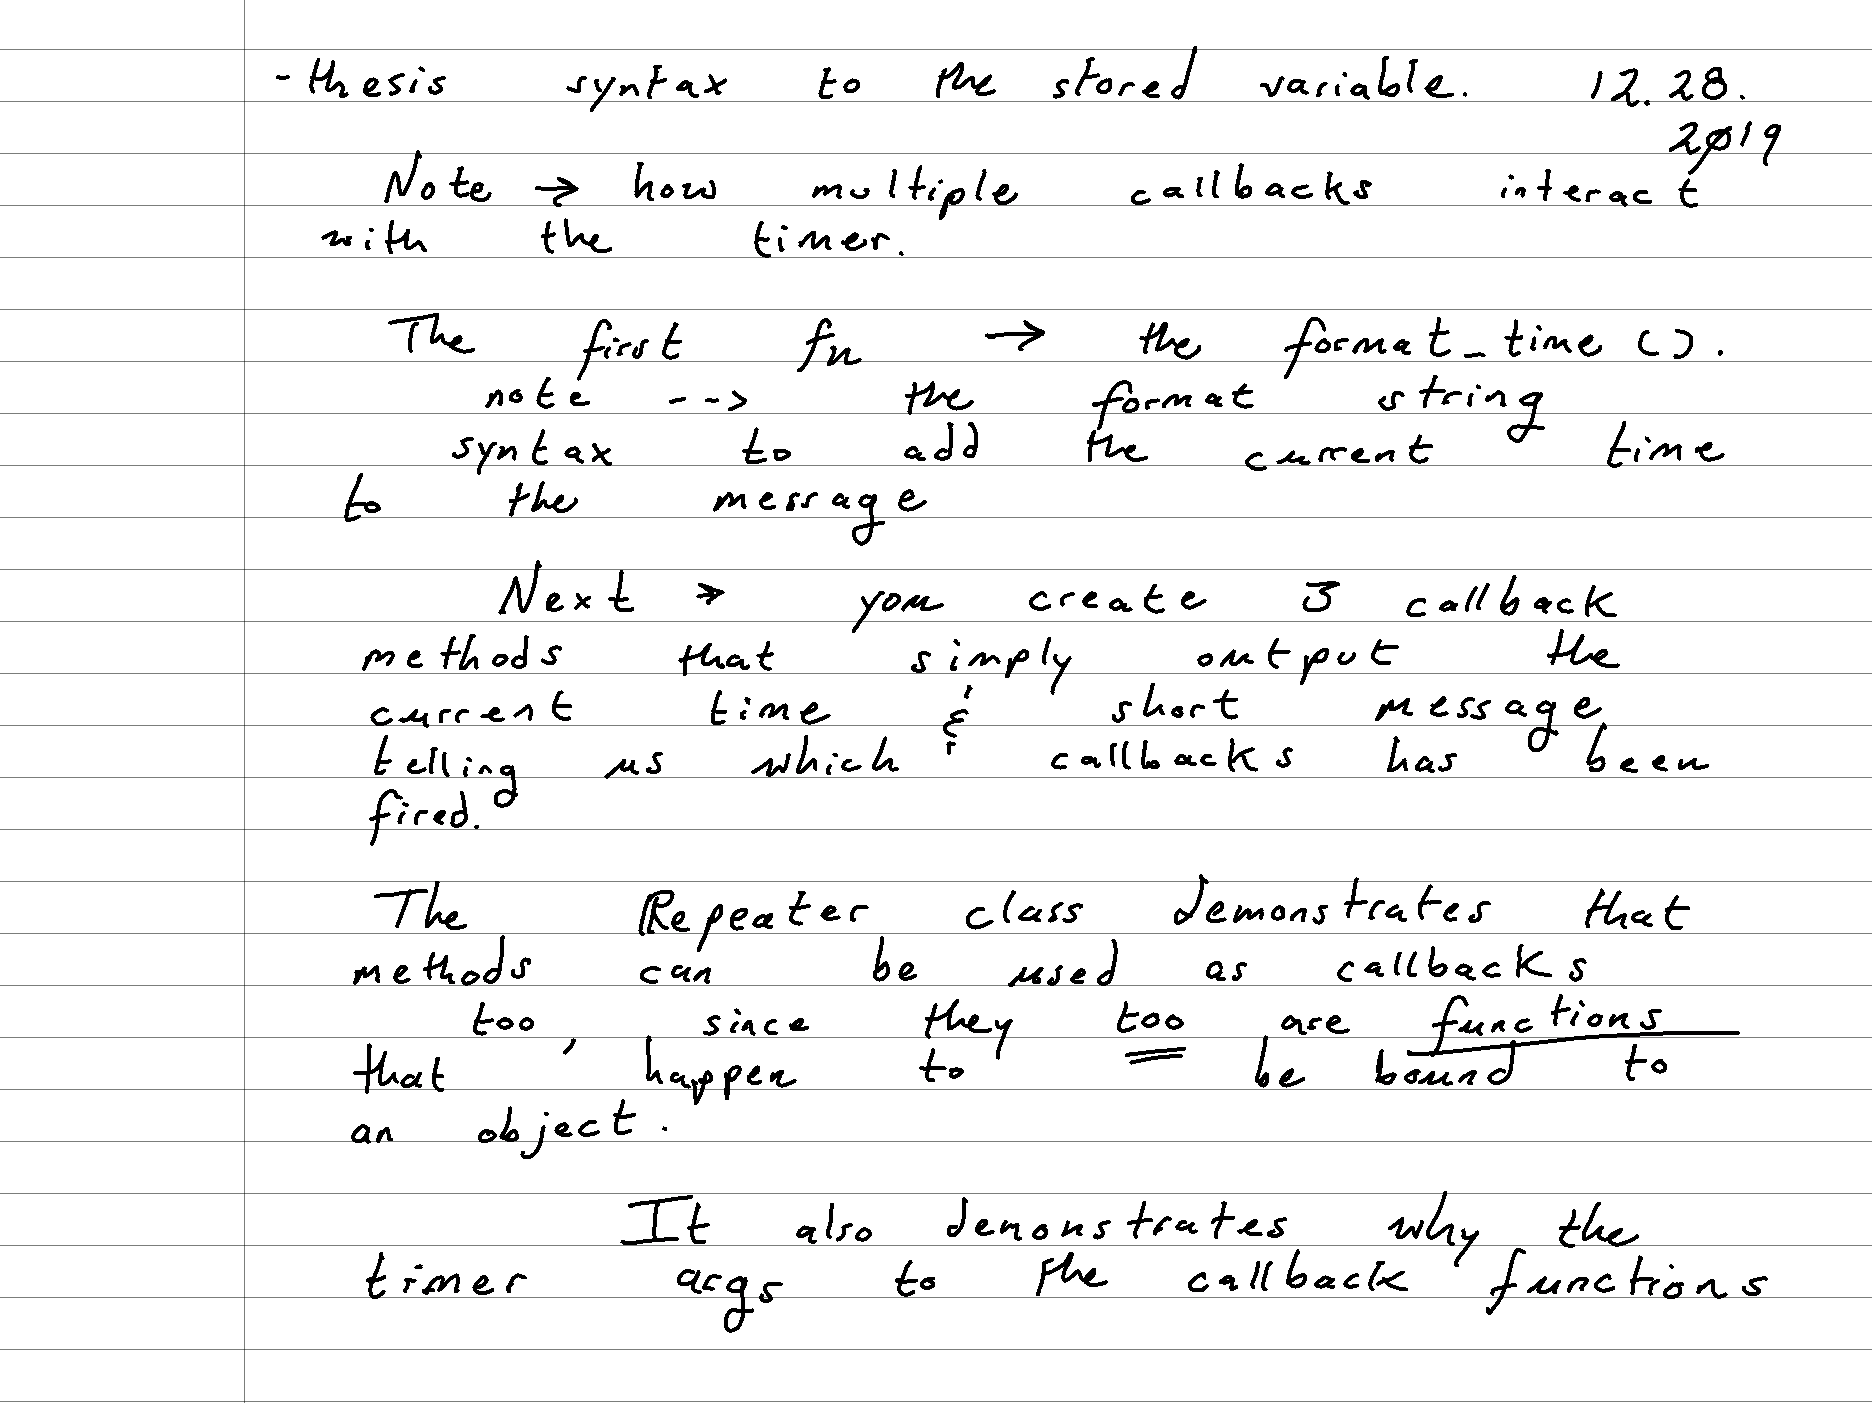 -thesis syntax to the stored variable. 12.28.
2019
Note → how multiple callbacks interact
with the timer.
The first fn → the format_time().
note --> the format string
syntax to add the current time
to the message
Next → you create 3 callback
methods that simply output the
current time & short message
telling us which callbacks has been
fired.
The Repeater class demonstrates that
methods can be used as callbacks
too, since they too are functions
that happen to be bound to
an object.
It also demonstrates why the
timer args to the callback functions